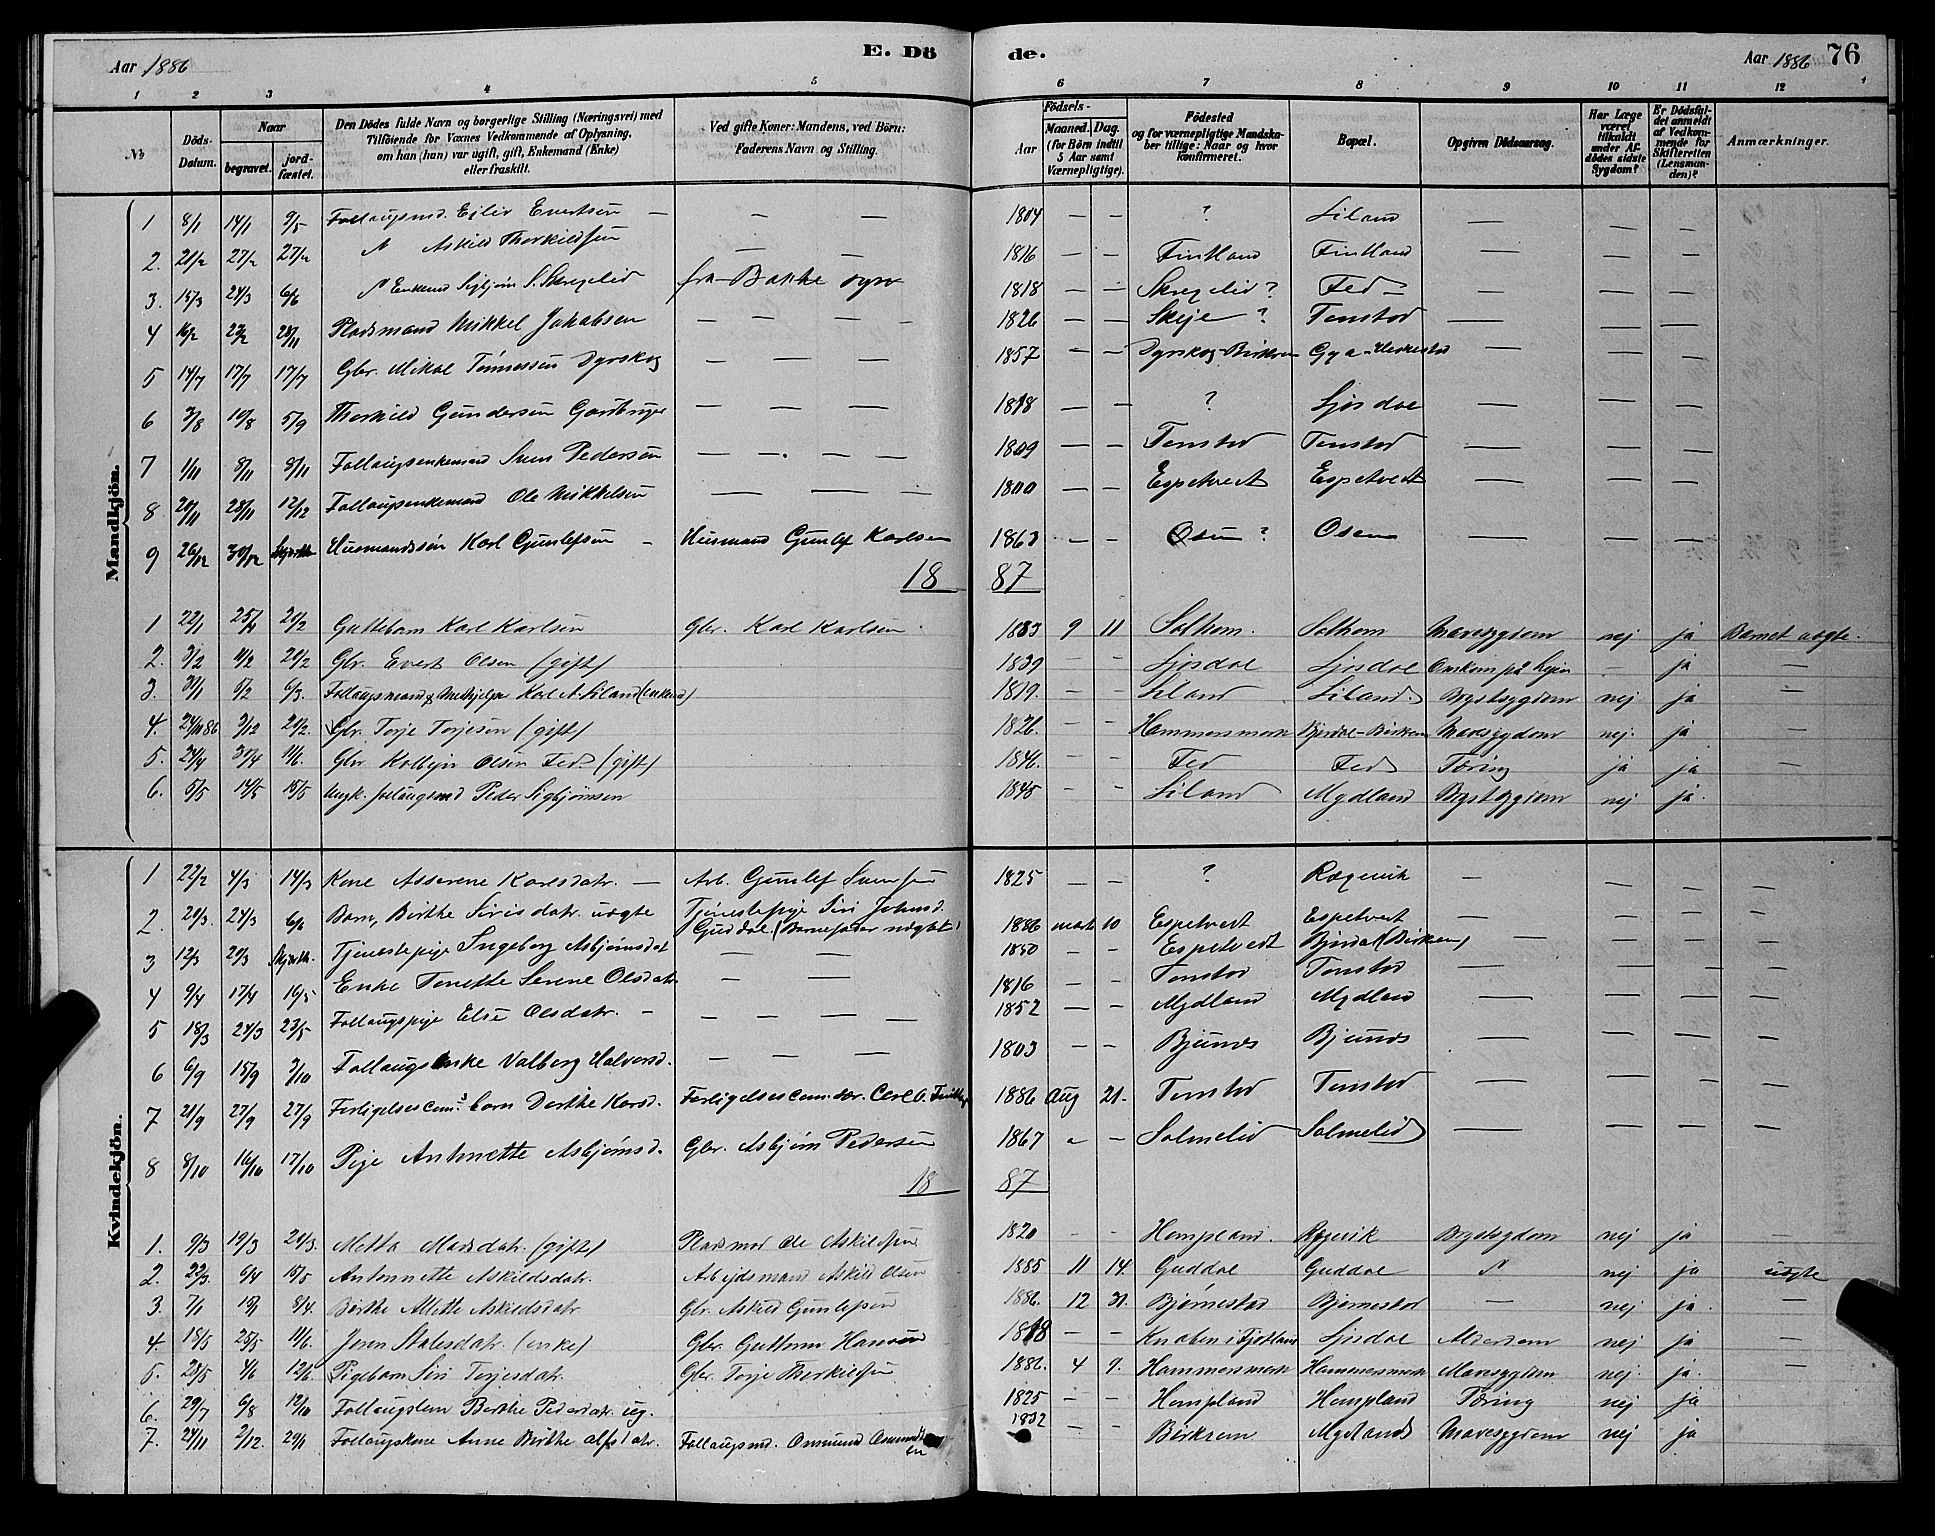 Aar 1886
E. Dö
de.
Aar 1886
76
1 2 3 4 5 6 7 8 9 10 11 12
No
Döds-Datum.
Naar
begravet.
jordfæstet.
Den Dödes fulde Navn og borgerlige Stilling (Næringsvei) med
Tilföiende for Voxnes Vedkommende af Oplysning,
om han (hun) var ugift, gift, Enkemand (Enke)
eller fraskilt.
Ved gifte Koner: Mandens, ved Börn:
Faderens Navn og Stilling.
Födsels-
Aar
Maaned. Dag.
(for Börn indtil
5 Aar samt
Værnepligtige).
Födested
og for værnepligtige Mandskaber tillige: Naar og hvor
konfirmeret.
Bopæl.
Opgiven Dödsaarsag.
Har Læge været tilkaldt under Afdödes sidste Sygdom?
Er Dödsfaldet anmeldt af Vedkommende for Skifteretten (Lensmanden)?
Anmærkninger.
Mandkjön.
1 8/1 14/1 9/5 Follaugsmd. Ejliv Evertsen — — — 1804 — — ? Liland — — —
2. 21/2 27/2 27/2 " Askild Thorkildsen — — 1816 — — Fintland Fintland — — —
3. 15/3 24/3 6/6 " Enkemd Sigbjørn S. Skregelid fra Bakke sogn 1818 — — Skregelid ? Fed — — —
4 16/2 23/2 28/11 Pladsmand Mikkel Jakobsen — — — — 1826 — — Skeje ? Tonstad — — —
5 14/7 17/7 17/7 Gbr. Mikal Tønnessen Dyrskog — — — 1857 — — Dyrskog-Birkrem Gya-Heskestad — — —
6 3/8 10/8 5/9 Thorkild Gundersen Gaardbruger — — — 1818 — — ? Sjosdal — — —
7 1/11 8/11 8/11 Follaugsenkemand Sven Pedersen — — — — 1809 — — Tonstad Tonstad — — —
8 20/11 28/11 12/12 Follaugsenkemand Ole Mikkelsen — — — — 1800 — — Espetvedt Espetvedt — — —
9 26/12 30/12 Husmandssøn Karl Gunlefsen — Husmand Gunlef Karlsen 1863 — — Osen ? Osen — — —
18 87
1 22/1 25/1 20/2 Guttebarn Karl Karlsen Gbr. Karl Karlsen 1883 9 11 Solhom. Solhom Mavesygdom nej ja Barnet uægte.
2. 3/2 11/2 20/2 Gbr. Evert Olsen (gift) 1839 — — Sjosdal Sjosdal Omkom på hejen — ja —
3. 31/1 5/2 6/3. Follaugsmand & Medhjelper Karl A. Liland (enkemd) 1819. — — Liland Liland. Brystsygdom nej ja —
4. 24/11 86 3/12 20/2. Gbr. Torje Torjesen (gift) 1826. — — Hammersmark Bjordal-Birkrem Mavesygdom nej. ja —
5. 24/4 30/4 11/6. Gbr Kolbjør Olsen Fed. (gift) — — Fed Fed Tæring ja ja —
6. 5/5 14/5 15/5 Ungk. follaugsmd Peder Sigbjørnsen 1845 — — Liland Mydland Brystsygdom nej ja. —
Kvindekjön.
1 22/2 4/3 14/3 Kone Asserene Karlsdatr. — Arb. Gunlef Svensen 1825 — — ? Rægevik — — —
2. 20/3. 24/3 6/6 Barn, Birthe Sirisdatr. uægte Tjenestepige Siri Johnsd. Guddal. (Barnefader nægtet) 1886 marts 10 Espetvedt Espetvedt — — —
3 12/3 20/3 Tjenestepige Ingeborg Asbjørnsdat — — 1850 — — Espetvedt Bjordal (Birkrem) — — —
4 9/4 17/4 16/5 Enke Tonette Serene Olsdatr. — — 1816 — — Tonstad Tonstad — — —
5 18/3 24/3 23/5 Follaugspige Else Olsdatr. — — — — — 1852 — — Mydland Mydland — — —
6 6/9 15/9 3/10 Follaugsenke Valborg Halvorsd. — — — 1803 — — Bjunes Bjunes — — —
7 21/9 27/9 27/9 Forligelsescom.s barn Dorthe Karsd. Forligelsescom.sær. Carl G. 1886 Aug 21. Tonstad Tonstad — — —
8 8/10 16/10 17/10 Pige Antonette Asbjørnsd. Gbr. Asbjørn Pedersen 1867 — — Salmelid Salmelid — — —
18 87
1. 9/3 19/3 20/3. Metta Madsdatr. (gift) Pladsmd Ole Askildsen 1820 — — Hompland. Rægevik Brystsygdom nej ja —
2. 22/3. 6/4 15/5 Antonette Askildsdatr. Arbejdsmand Askild Olsen 1885 11 14. Guddal Guddal " nej ja uægte
3. 7/1 8/4. Birthe Mette Askildsdatr. Gbr. Askild Gunlefsen 1886. 12 31. Bjørnestad Bjørnestad — nej ja. —
4. 18/5 25/5 11/6. Joren Stalesdatr. (enke) Gbr. Guttorm Hansen 1818 — — Knaben i Fjotland Sjosdal Alderdom nej ja —
5. 28/5 4/6 12/6 Pigebarn Siri Torjesdatr. Gbr. Torje Therkildsen 1886. 4 9. Hammersmark Hammersmark Mavesygdom nej. ja. —
6. 29/7 6/8 10/10 Follaugslem Birthe Pedersdatr. ug. 1825 — — Hompland Hompland Tæring nej ja
7. 24/11 2/12. 29/1 Follaugskone Anne Birthe Alfsdatr. Follaugsmd. Osmund Osmundsen 1832 — — Birkrem Mydland Mavesygdom nej ja